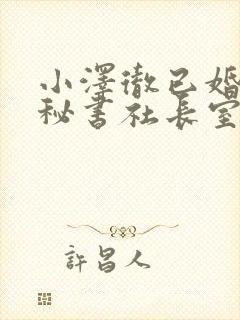 小澤徹已婚
秘書社長室
許昌人